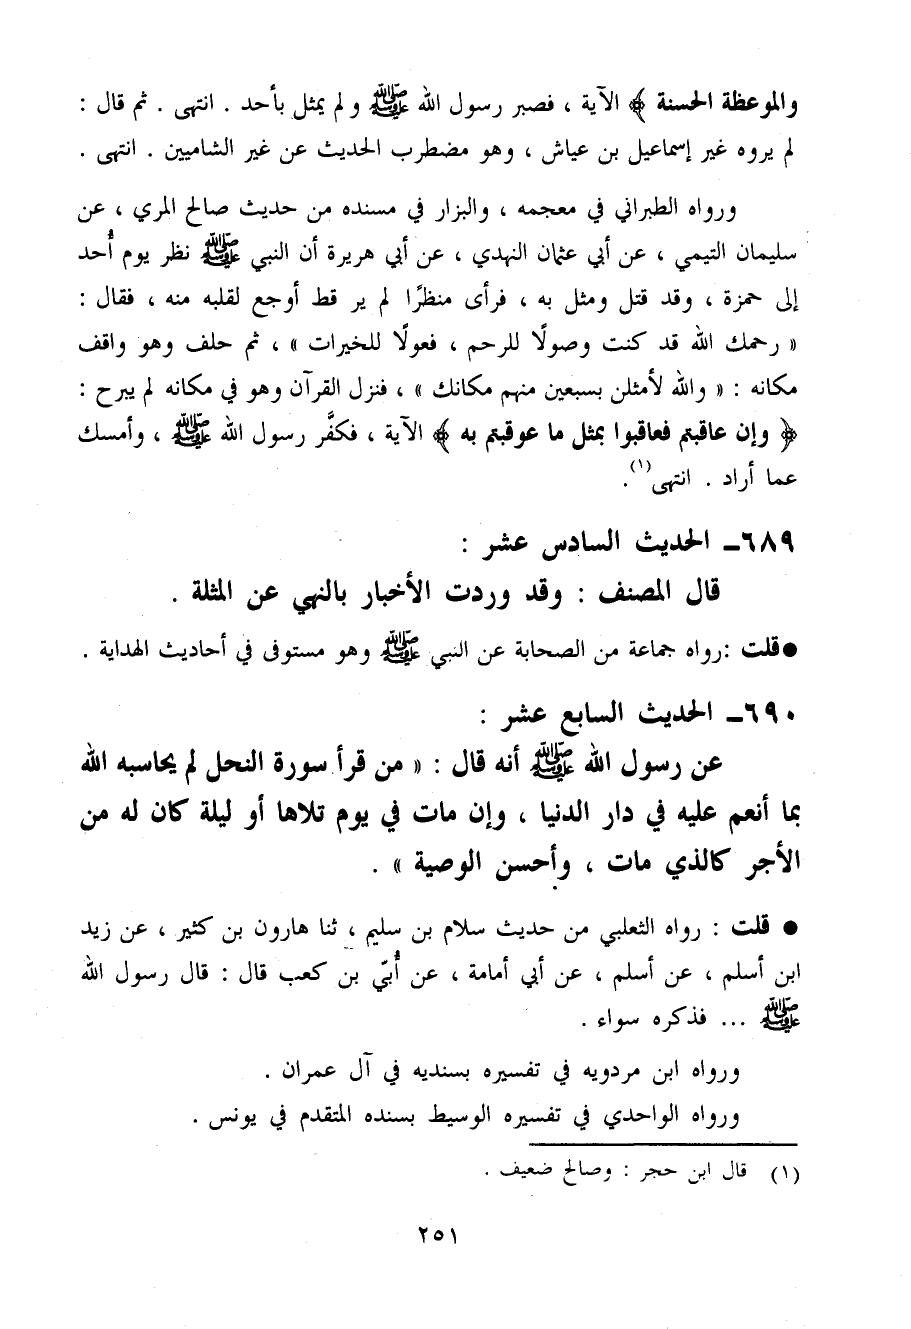 والموعظة الحسنة ﴾ الآية ، فصبر رسول الله ﷺ ولم يمثل بأحد . انتهى . ثم قال :
لم يروه غير إسماعيل بن عياش ، وهو مضطرب الحديث عن غير الشاميين . انتهى .
ورواه الطبراني في معجمه ، والبزار في مسنده من حديث صالح المري ، عن
سليمان التيمي ، عن أبي عثمان النهدي ، عن أبي هريرة أن النبي ﷺ نظر يوم أُحد
إلى حمزة ، وقد قتل ومثل به ، فرأى منظرًا لم ير قط أوجع لقلبه منه ، فقال :
« رحمك الله قد كنت وصولًا للرحم ، فعولًا للخيرات » ، ثم حلف وهو واقف
مكانه : « والله لأمثلن بسبعين منهم مكانك » ، فنزل القرآن وهو في مكانه لم يبرح :
﴿ وإن عاقبتم فعاقبوا بمثل ما عوقبتم به ﴾ الآية ، فكفَّر رسول الله ﷺ ، وأمسك
عما أراد . انتهى(١).
٦٨٩ـ الحديث السادس عشر :
قال المصنف : وقد وردت الأخبار بالنهي عن المثلة .
● قلت : رواه جماعة من الصحابة عن النبي ﷺ وهو مستوفى في أحاديث الهداية .
٦٩٠ـ الحديث السابع عشر :
عن رسول الله ﷺ أنه قال : « من قرأ سورة النحل لم يحاسبه الله
بما أنعم عليه في دار الدنيا ، وإن مات في يوم تلاها أو ليلة كان له من
الأجر كالذي مات ، وأحسن الوصية » .
● قلت : رواه الثعلبي من حديث سلام بن سليم ، ثنا هارون بن كثير ، عن زيد
ابن أسلم ، عن أسلم ، عن أبي أمامة ، عن أُبيّ بن كعب قال : قال رسول الله
ﷺ ... فذكره سواء .
ورواه ابن مردويه في تفسيره بسنديه في آل عمران .
ورواه الواحدي في تفسيره الوسيط بسنده المتقدم في يونس .
(١) قال ابن حجر : وصالح ضعيف .
٢٥١